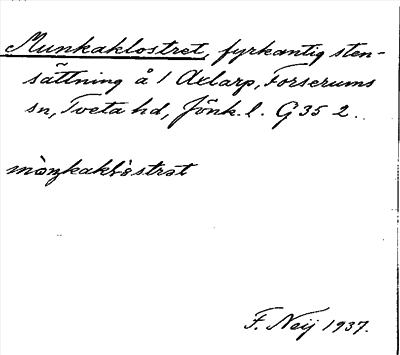 Munkaklostret, fyrkantig sten-
sättning å 1 Axlarp, Forserums
sn, Tveta hd, Jönk. l. G 35 2.
F. Neij 1937.